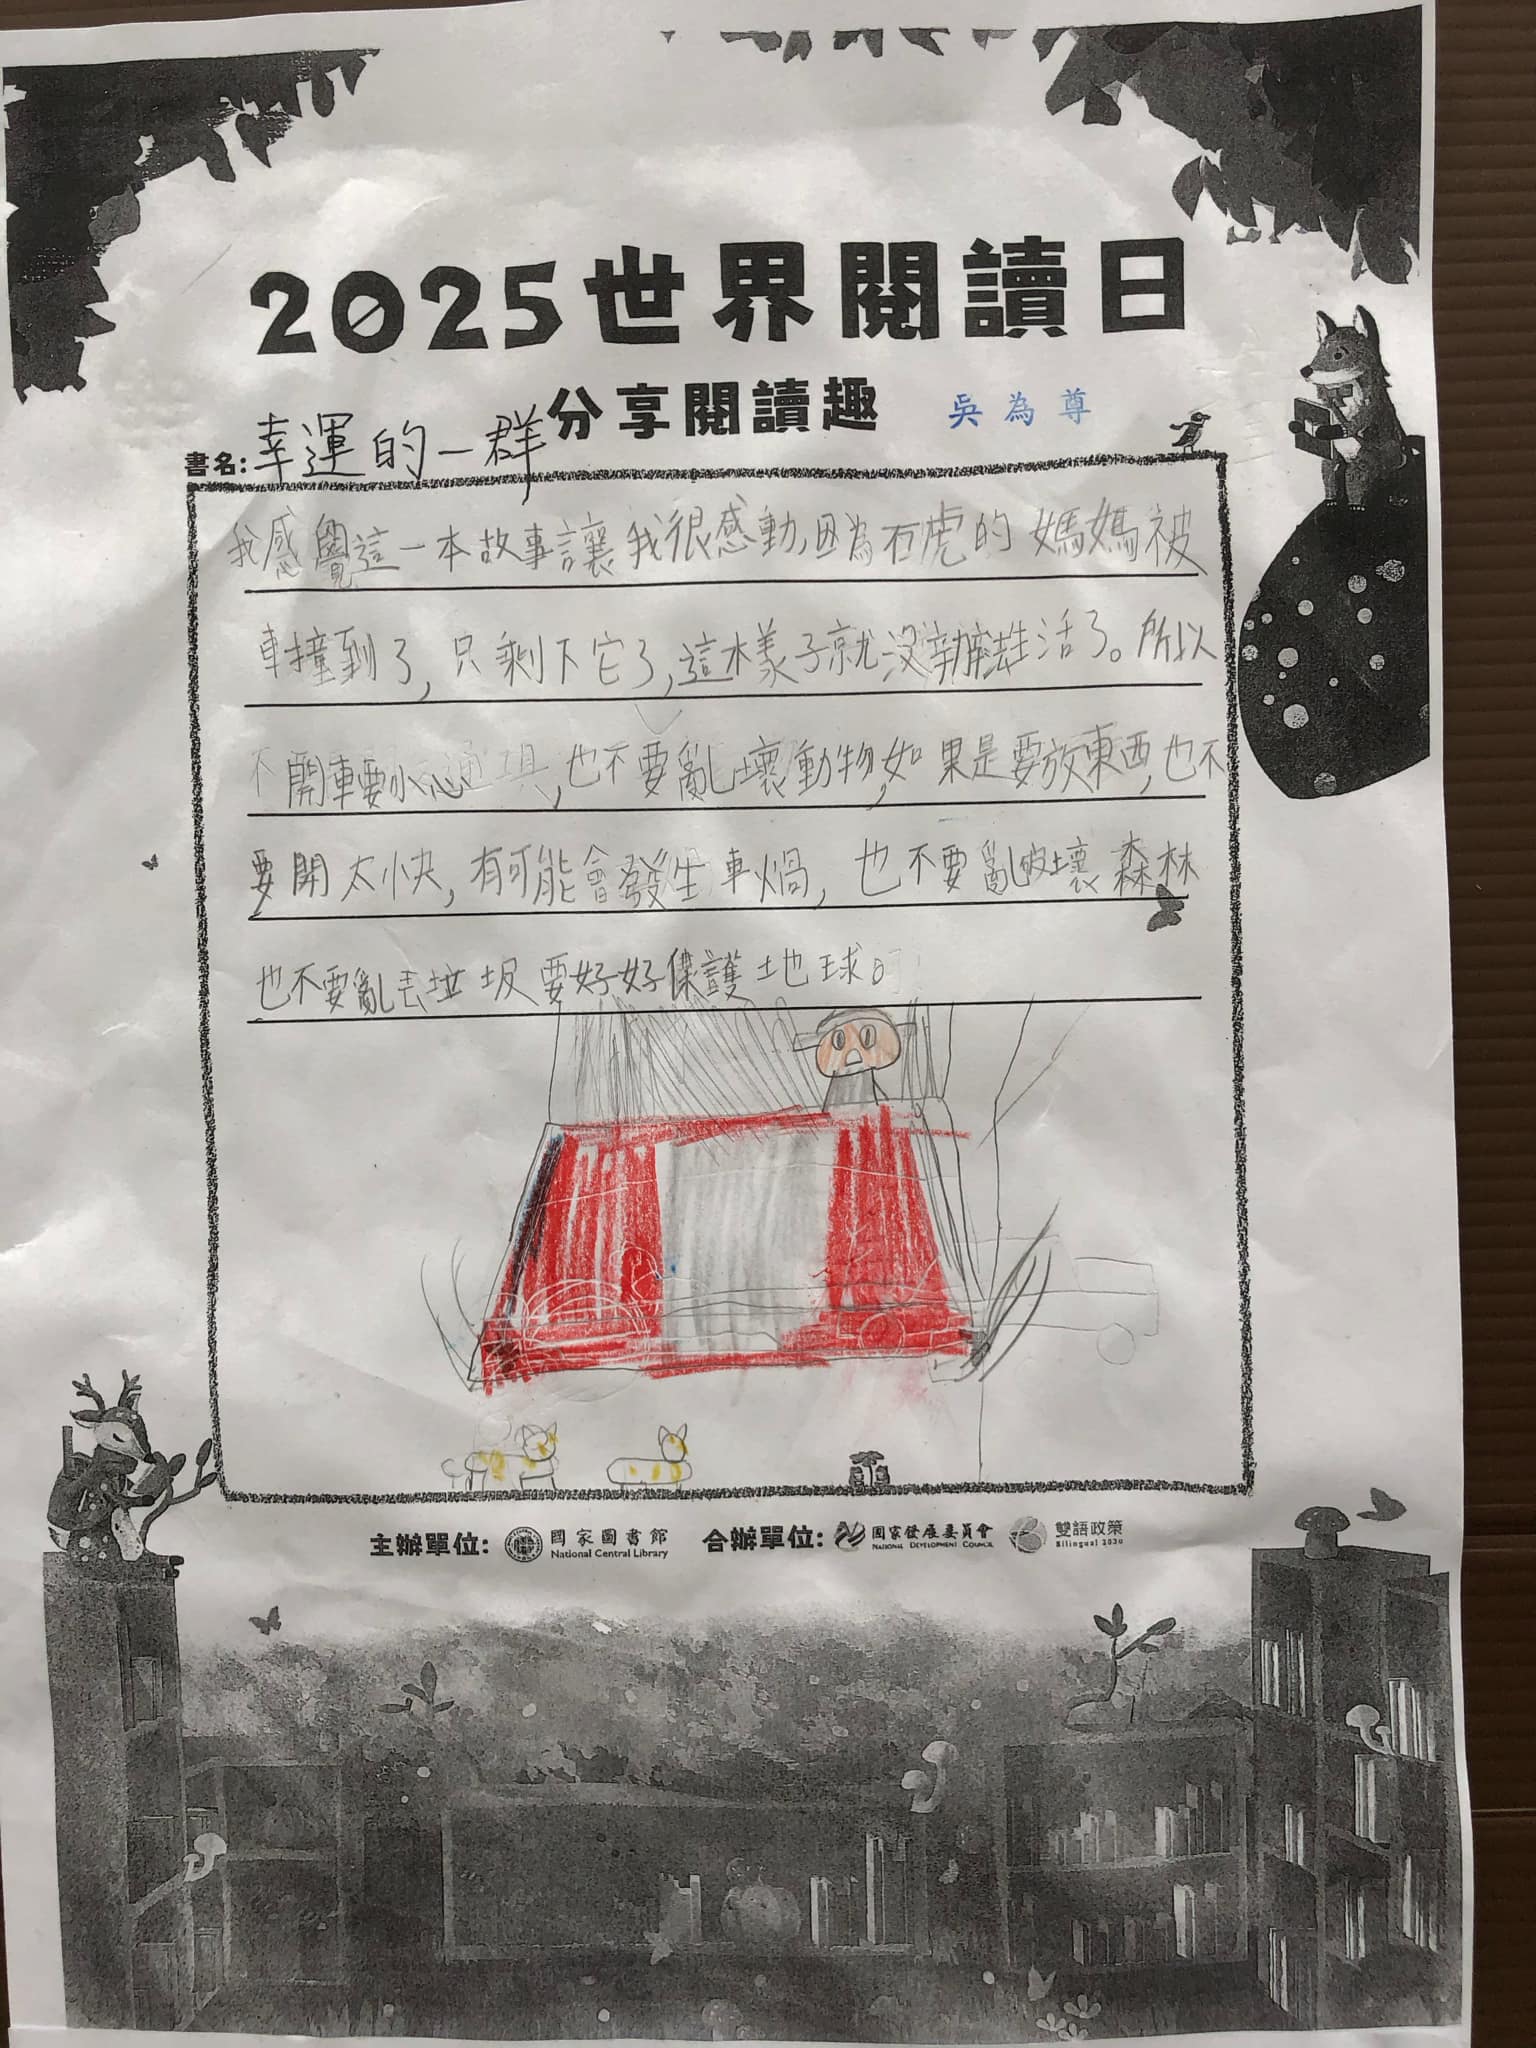 2025世界閱讀日
分享閱讀趣
吳為尊
書名:幸運的一群
我感覺這一本故事讓我很感動,因為石虎的媽媽被
車撞到了,只剩下它了,這樣子就沒辦法生活了。所以
不開車要小心,也不要亂壞動物,如果是要放東西,也不
要開太快,有可能會發生車禍,也不要亂破壞森林
也不要亂丟垃圾要好好保護地球。
主辦單位: 國家圖書館 National Central Library 合辦單位: 國家發展委員會 National Development Council 雙語政策 Bilingual 2030